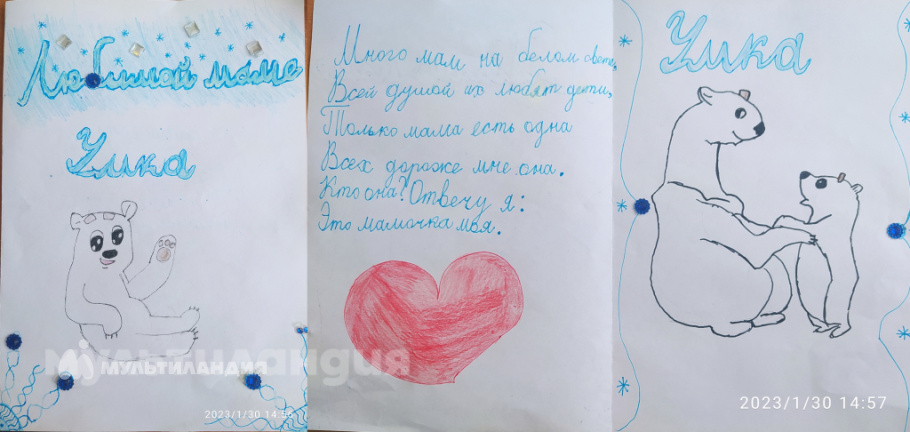 Любимой маме
Умка
МУЛЬТИЛАНДИЯ
2023/1/30 14:56
Много мам на белом свете,
Всей душой их любят дети,
Только мама есть одна
Всех дороже мне она.
Кто она? Отвечу я:
Это мамочка моя.
Умка
2023/1/30 14:57